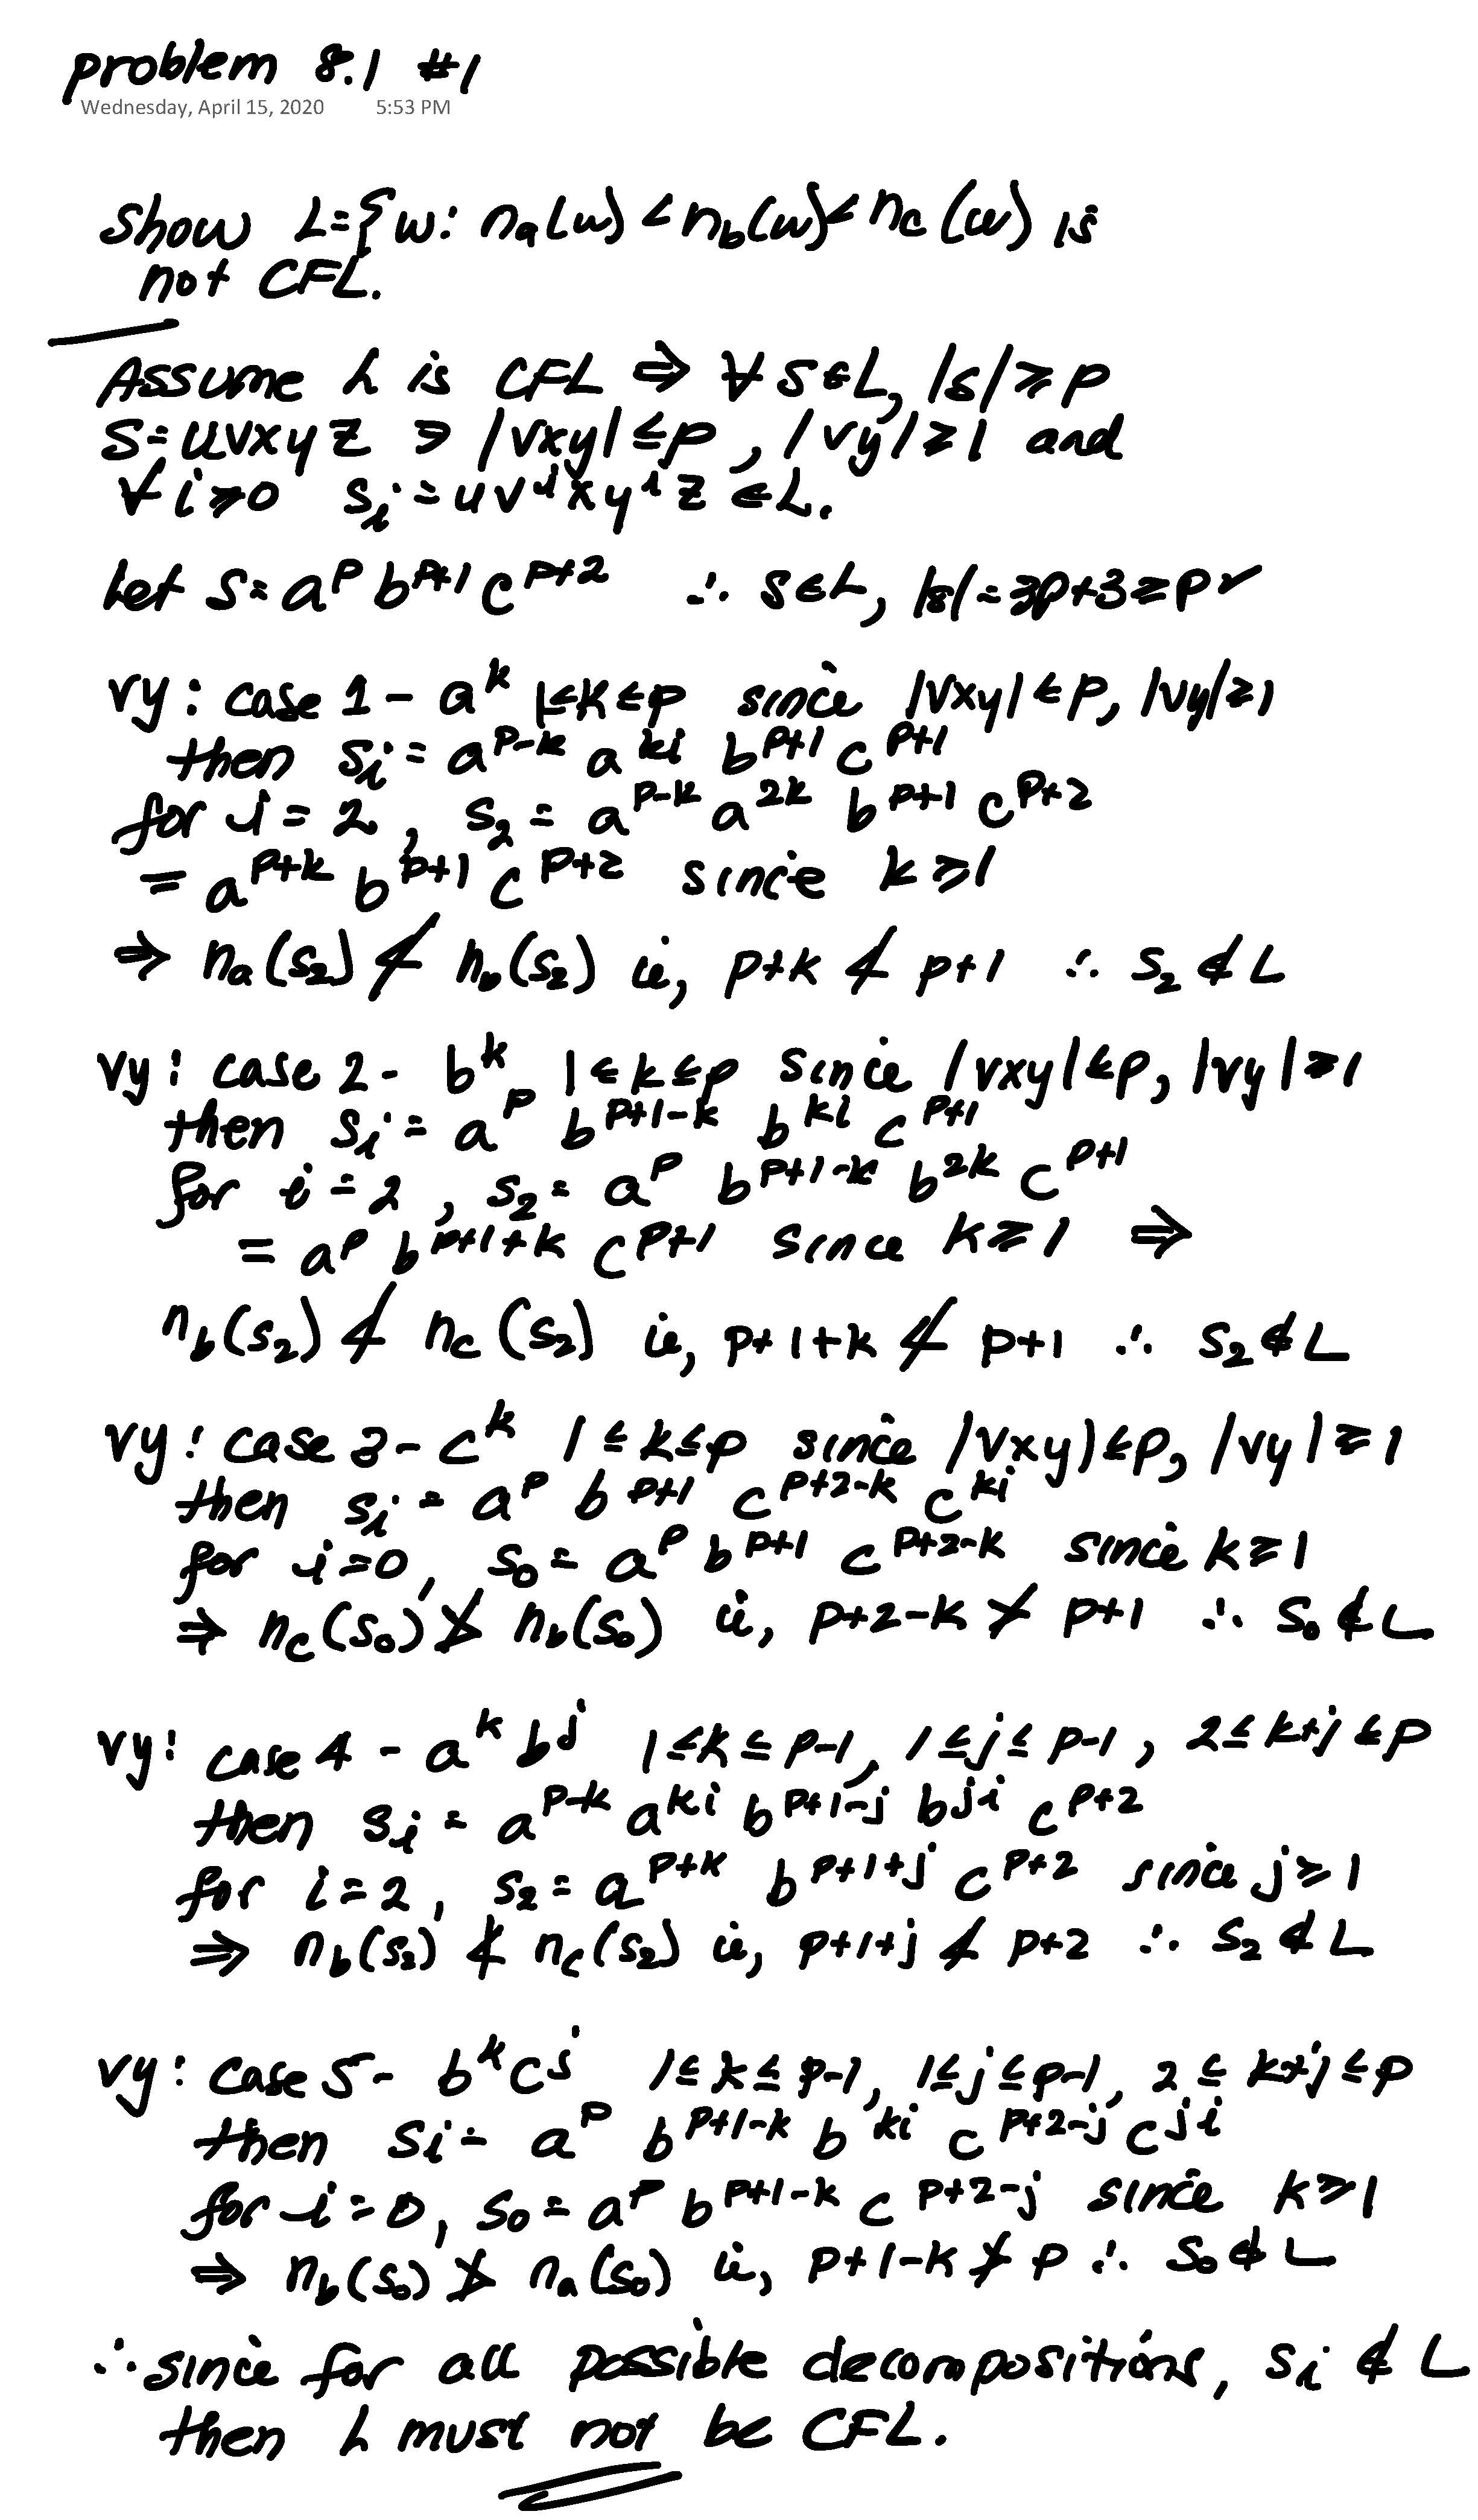 problem 8.1 #1
Wednesday, April 15, 2020 5:53 PM
Show L={w: nₐ(w) < n_b(w) < n_c(w) is
not CFL.
Assume L is CFL ⇒ ∀ s∈L, |s| ≥ p
s=uvxyz ∋ |vxy| ≤ p, |vy| ≥ 1 and
∀ i ≥ 0 sᵢ = uvⁱxyⁱz ∈ L.
Let s = a^p b^{p+1} c^{p+2} ∴ s∈L, |s| = 3p+3 ≥ p ✓
vy: case 1 - a^k 1≤k≤p since |vxy| ≤ p, |vy| ≥ 1
then sᵢ = a^{p-k} a^{ki} b^{p+1} c^{p+1}
for i = 2, s₂ = a^{p-k} a^{2k} b^{p+1} c^{p+2}
= a^{p+k} b^{p+1} c^{p+2} since k ≥ 1
⇒ nₐ(s₂) ≮ n_b(s₂) ie, p+k ≮ p+1 ∴ s₂ ∉ L
vy: case 2 - b^k 1≤k≤p since |vxy| ≤ p, |vy| ≥ 1
then sᵢ = a^p b^{p+1-k} b^{ki} c^{p+1}
for i = 2, s₂ = a^p b^{p+1-k} b^{2k} c^{p+1}
= a^p b^{p+1+k} c^{p+1} since k ≥ 1 ⇒
n_b(s₂) ≮ n_c(s₂) ie, p+1+k ≮ p+1 ∴ s₂ ∉ L
vy: case 3 - c^k 1≤k≤p since |vxy) ≤ p, |vy| ≥ 1
then sᵢ = a^p b^{p+1} c^{p+2-k} c^{ki}
for i = 0, s₀ = a^p b^{p+1} c^{p+2-k} since k ≥ 1
⇒ n_c(s₀) ≯ n_b(s₀) ie, p+2-k ≯ p+1 ∴ s₀ ∉ L
vy: case 4 - a^k b^j 1≤k≤p-1, 1≤j≤p-1, 2≤k+j≤p
then sᵢ = a^{p-k} a^{ki} b^{p+1-j} b^{ji} c^{p+2}
for i = 2, s₂ = a^{p+k} b^{p+1+j} c^{p+2} since j ≥ 1
⇒ n_b(s₂) ≮ n_c(s₂) ie, p+1+j ≮ p+2 ∴ s₂ ∉ L
vy: case 5 - b^k c^j 1≤k≤p-1, 1≤j≤p-1, 2≤k+j≤p
then sᵢ = a^p b^{p+1-k} b^{ki} c^{p+2-j} c^{ji}
for i = 0, s₀ = a^p b^{p+1-k} c^{p+2-j} since k ≥ 1
⇒ n_b(s₀) ≯ nₐ(s₀) ie, p+1-k ≯ p ∴ s₀ ∉ L
∴ since for all possible decompositions, sᵢ ∉ L
then L must not be CFL.